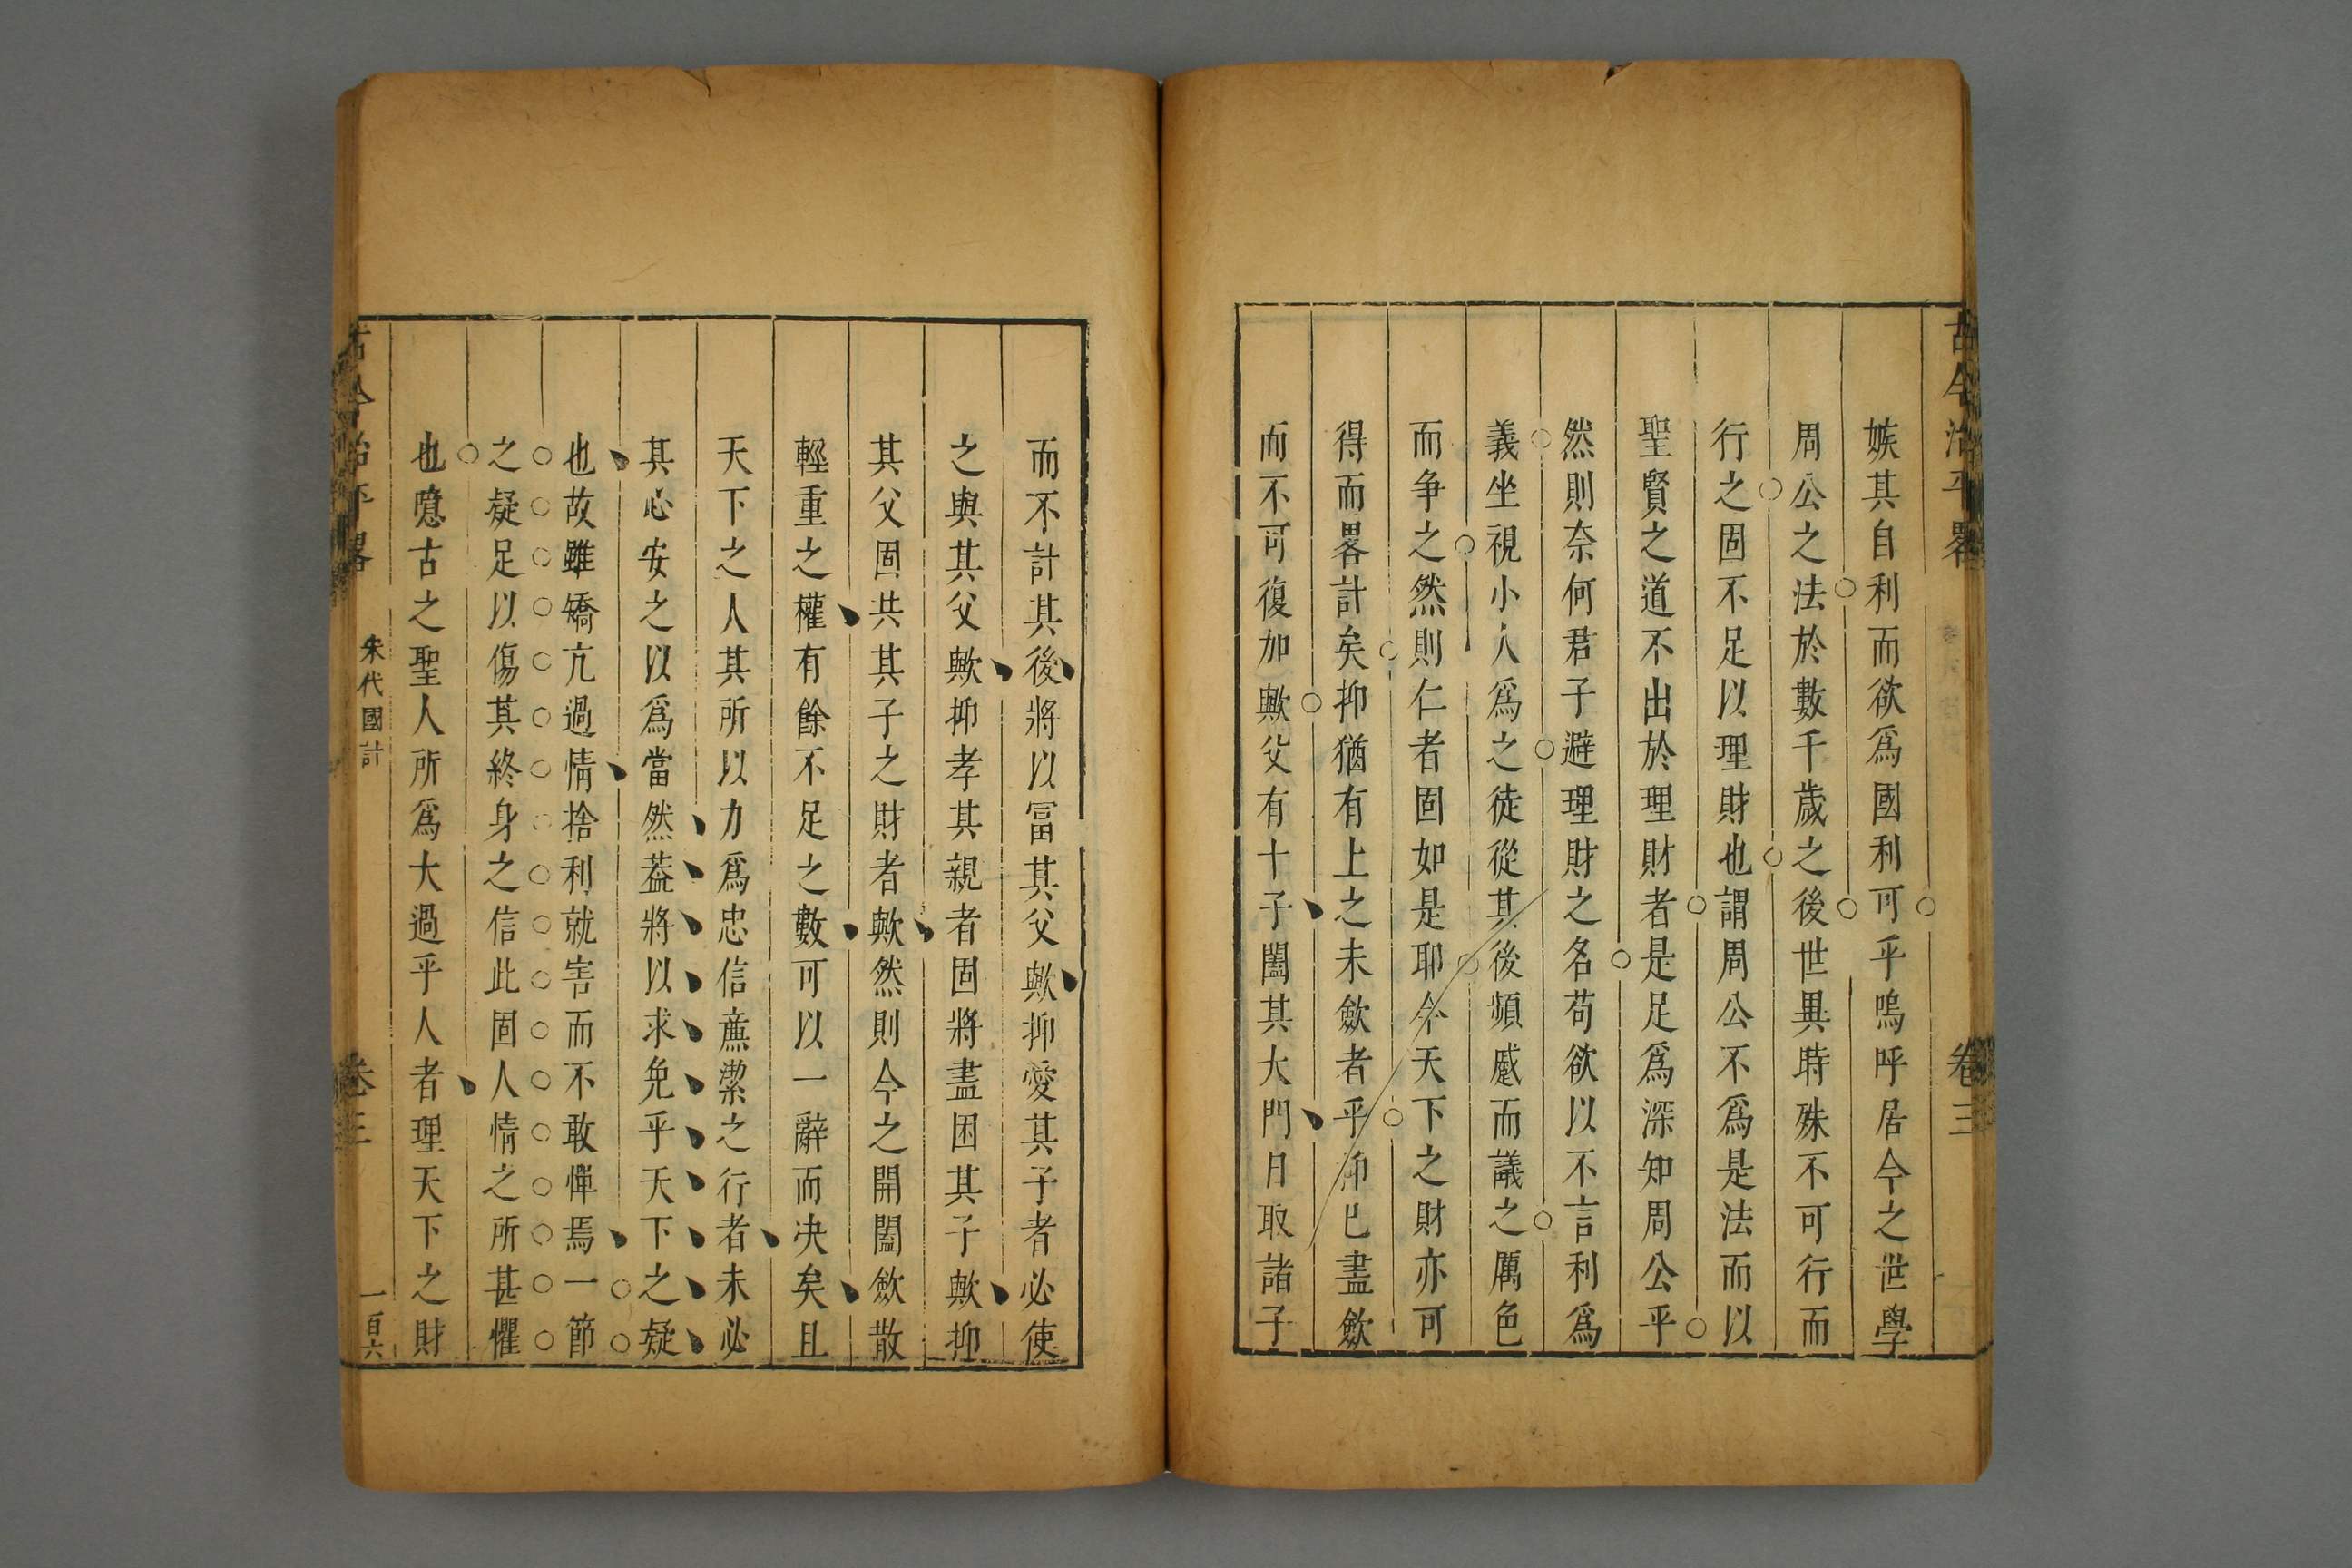 古今治平畧 卷三
嫉其自利而欲爲國利可乎嗚呼居今之世學
周公之法於數千歲之後世異時殊不可行而
行之固不足以理財也謂周公不爲是法而以
聖賢之道不出於理財者是足爲深知周公乎
然則奈何君子避理財之名苟欲以不言利爲
義坐視小人爲之徒從其後頻慼而議之厲色
而争之然則仁者固如是耶今天下之財亦可
得而畧計矣抑猶有上之未斂者乎抑巳盡斂
而不可復加歟父有十子闔其大門日取諸子
而不計其後將以冨其父歟抑愛其子者必使
之與其父歟抑孝其親者固將盡困其子歟抑
其父固共其子之財者歟然則今之開闔斂散
輕重之權有餘不足之數可以一辭而决矣且
天下之人其所以力爲忠信亷潔之行者未必
其心安之以爲當然葢將以求免乎天下之疑
也故雖矯亢過情捨利就害而不敢憚焉一節
之疑足以傷其終身之信此固人情之所甚懼
也噫古之聖人所爲大過乎人者理天下之財
古今治平畧 朱代國計 卷三 一百六